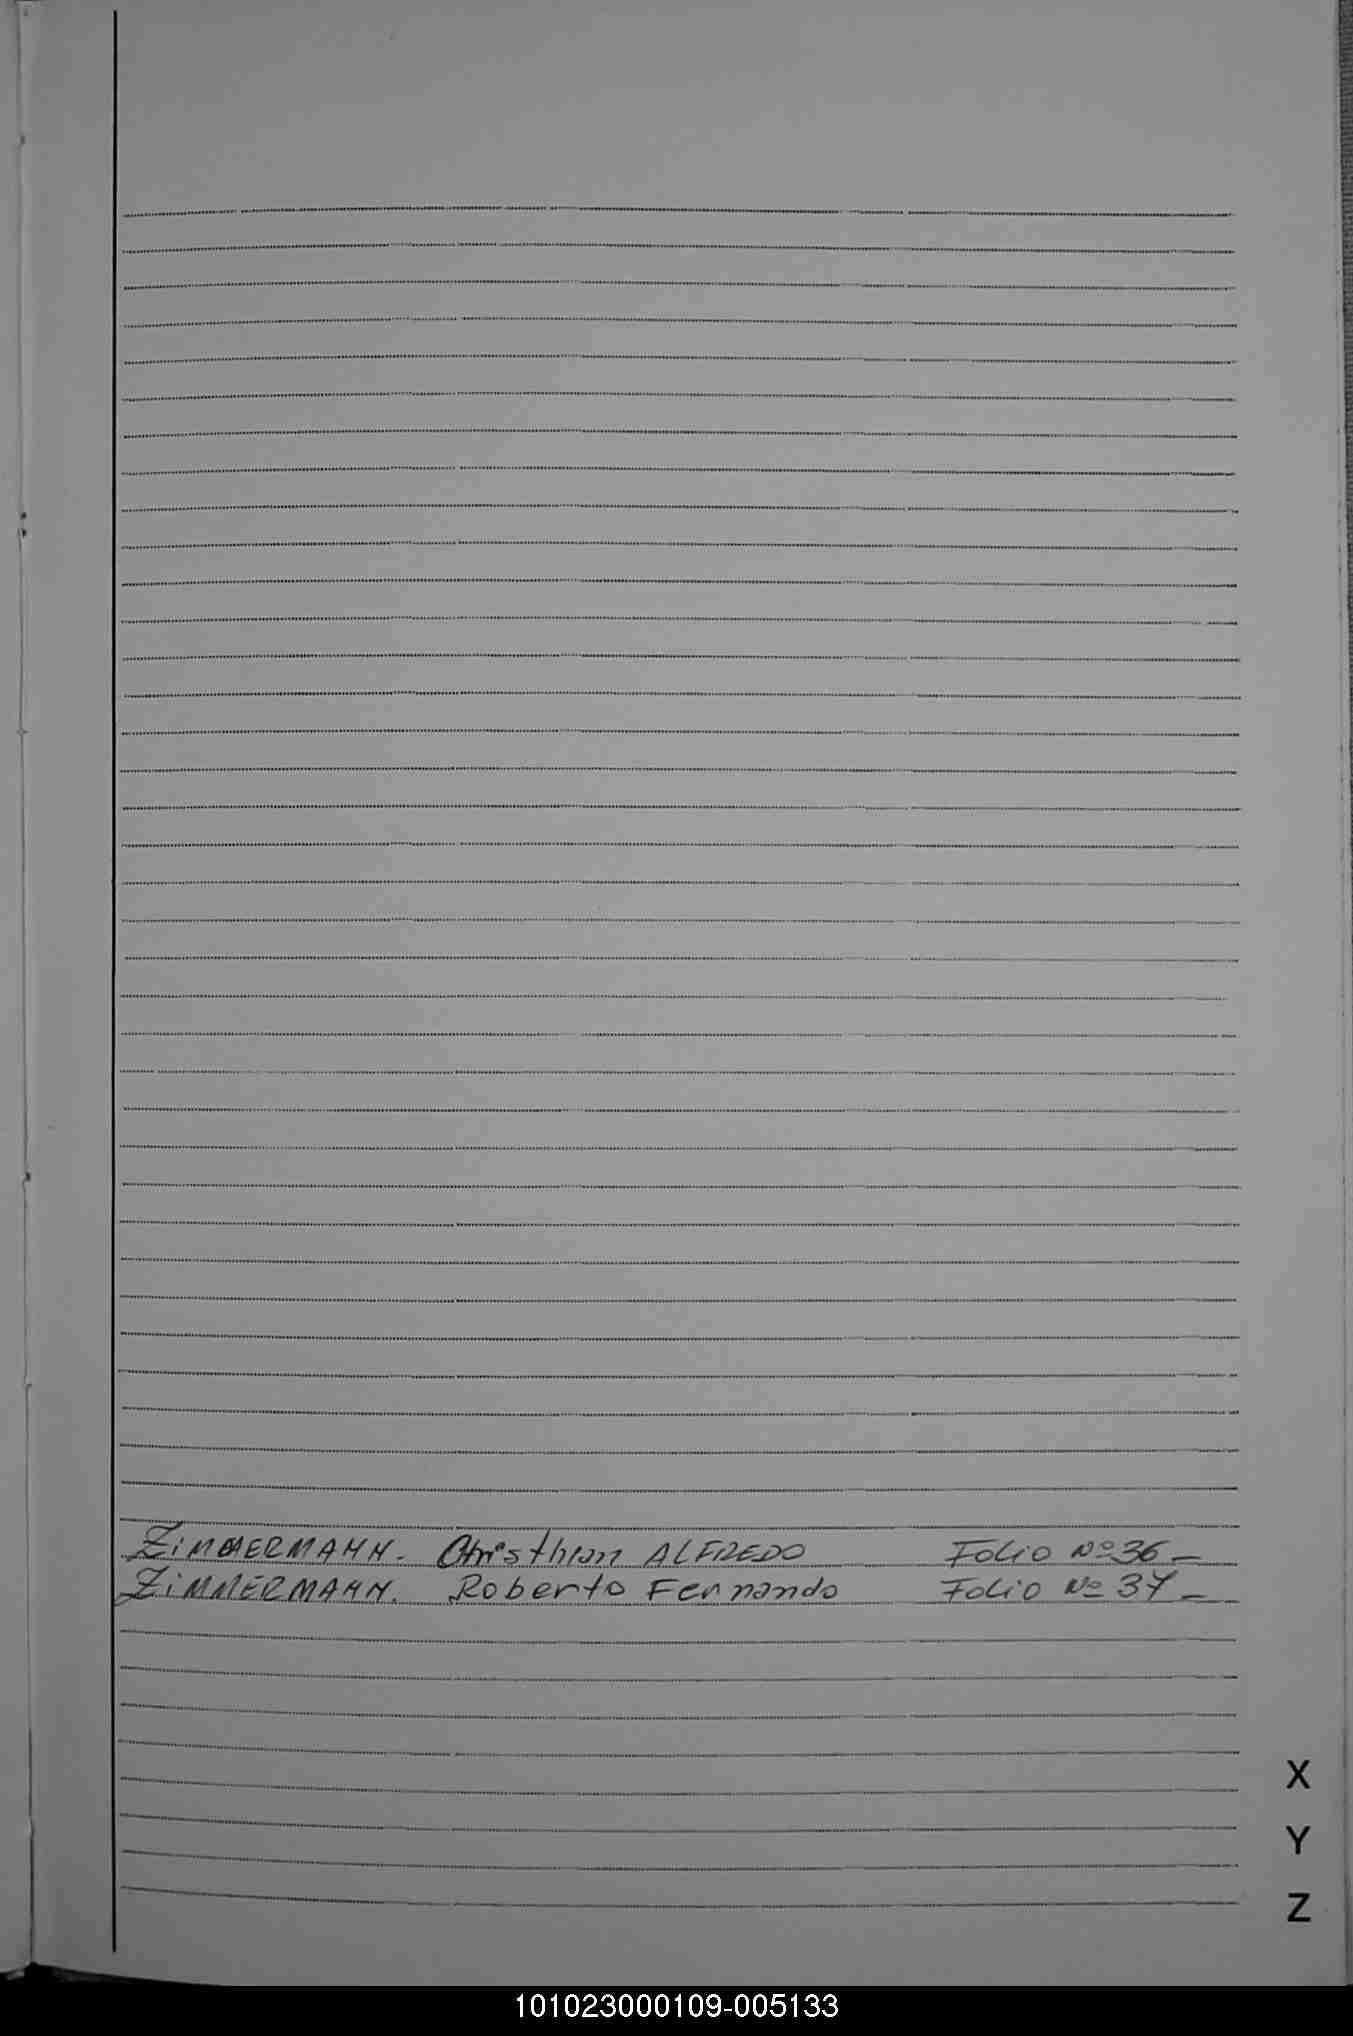 ZiMMERMANN. Christhian ALFREDO Folio Nº 36_
ZiMMERMANN. Roberto Fernando Folio Nº 37_
X
Y
Z
101023000109-005133